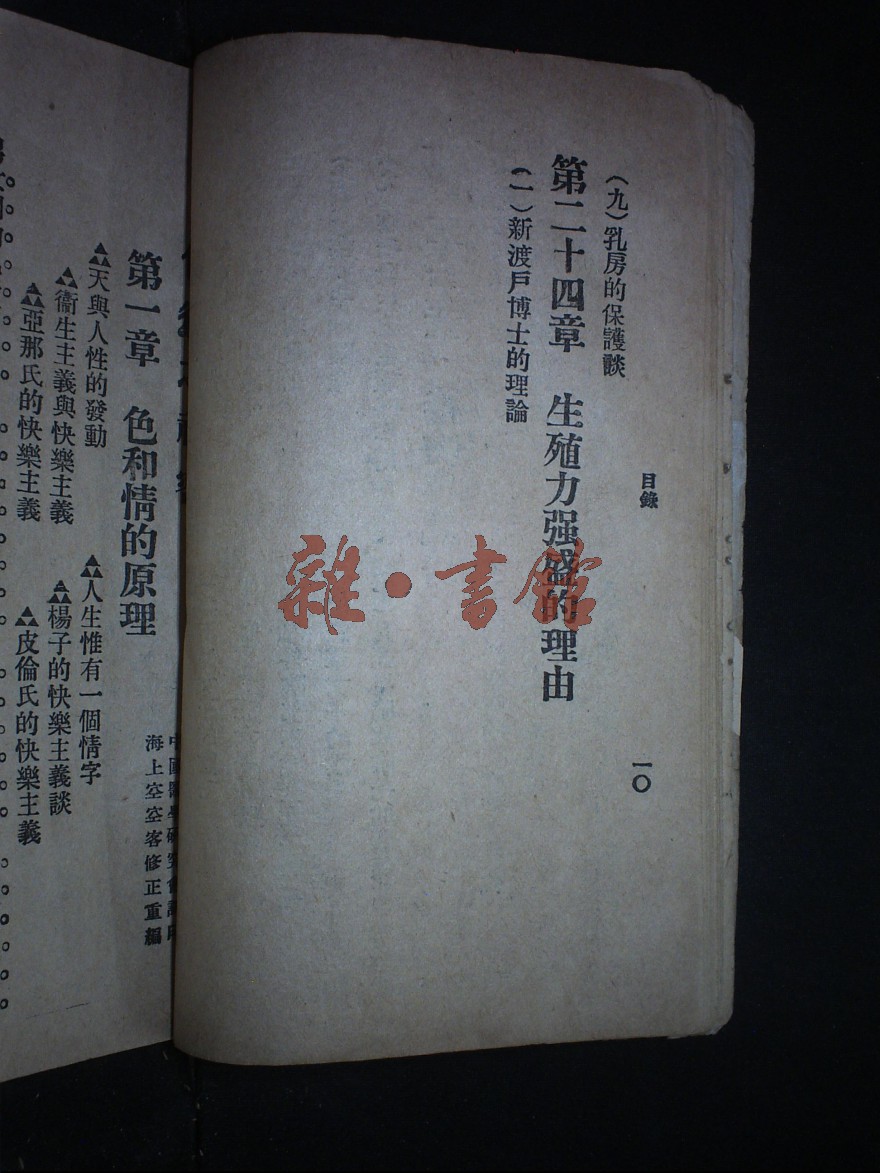 目錄
一〇
(九)乳房的保護談
第二十四章 生殖力强盛的理由
(一)新渡戶博士的理論
雜·書館
海上空空客修正重編
第一章 色和情的原理
天與人性的發動
人生惟有一個情字
衞生主義與快樂主義
楊子的快樂主義談
亞那氏的快樂主義
皮倫氏的快樂主義